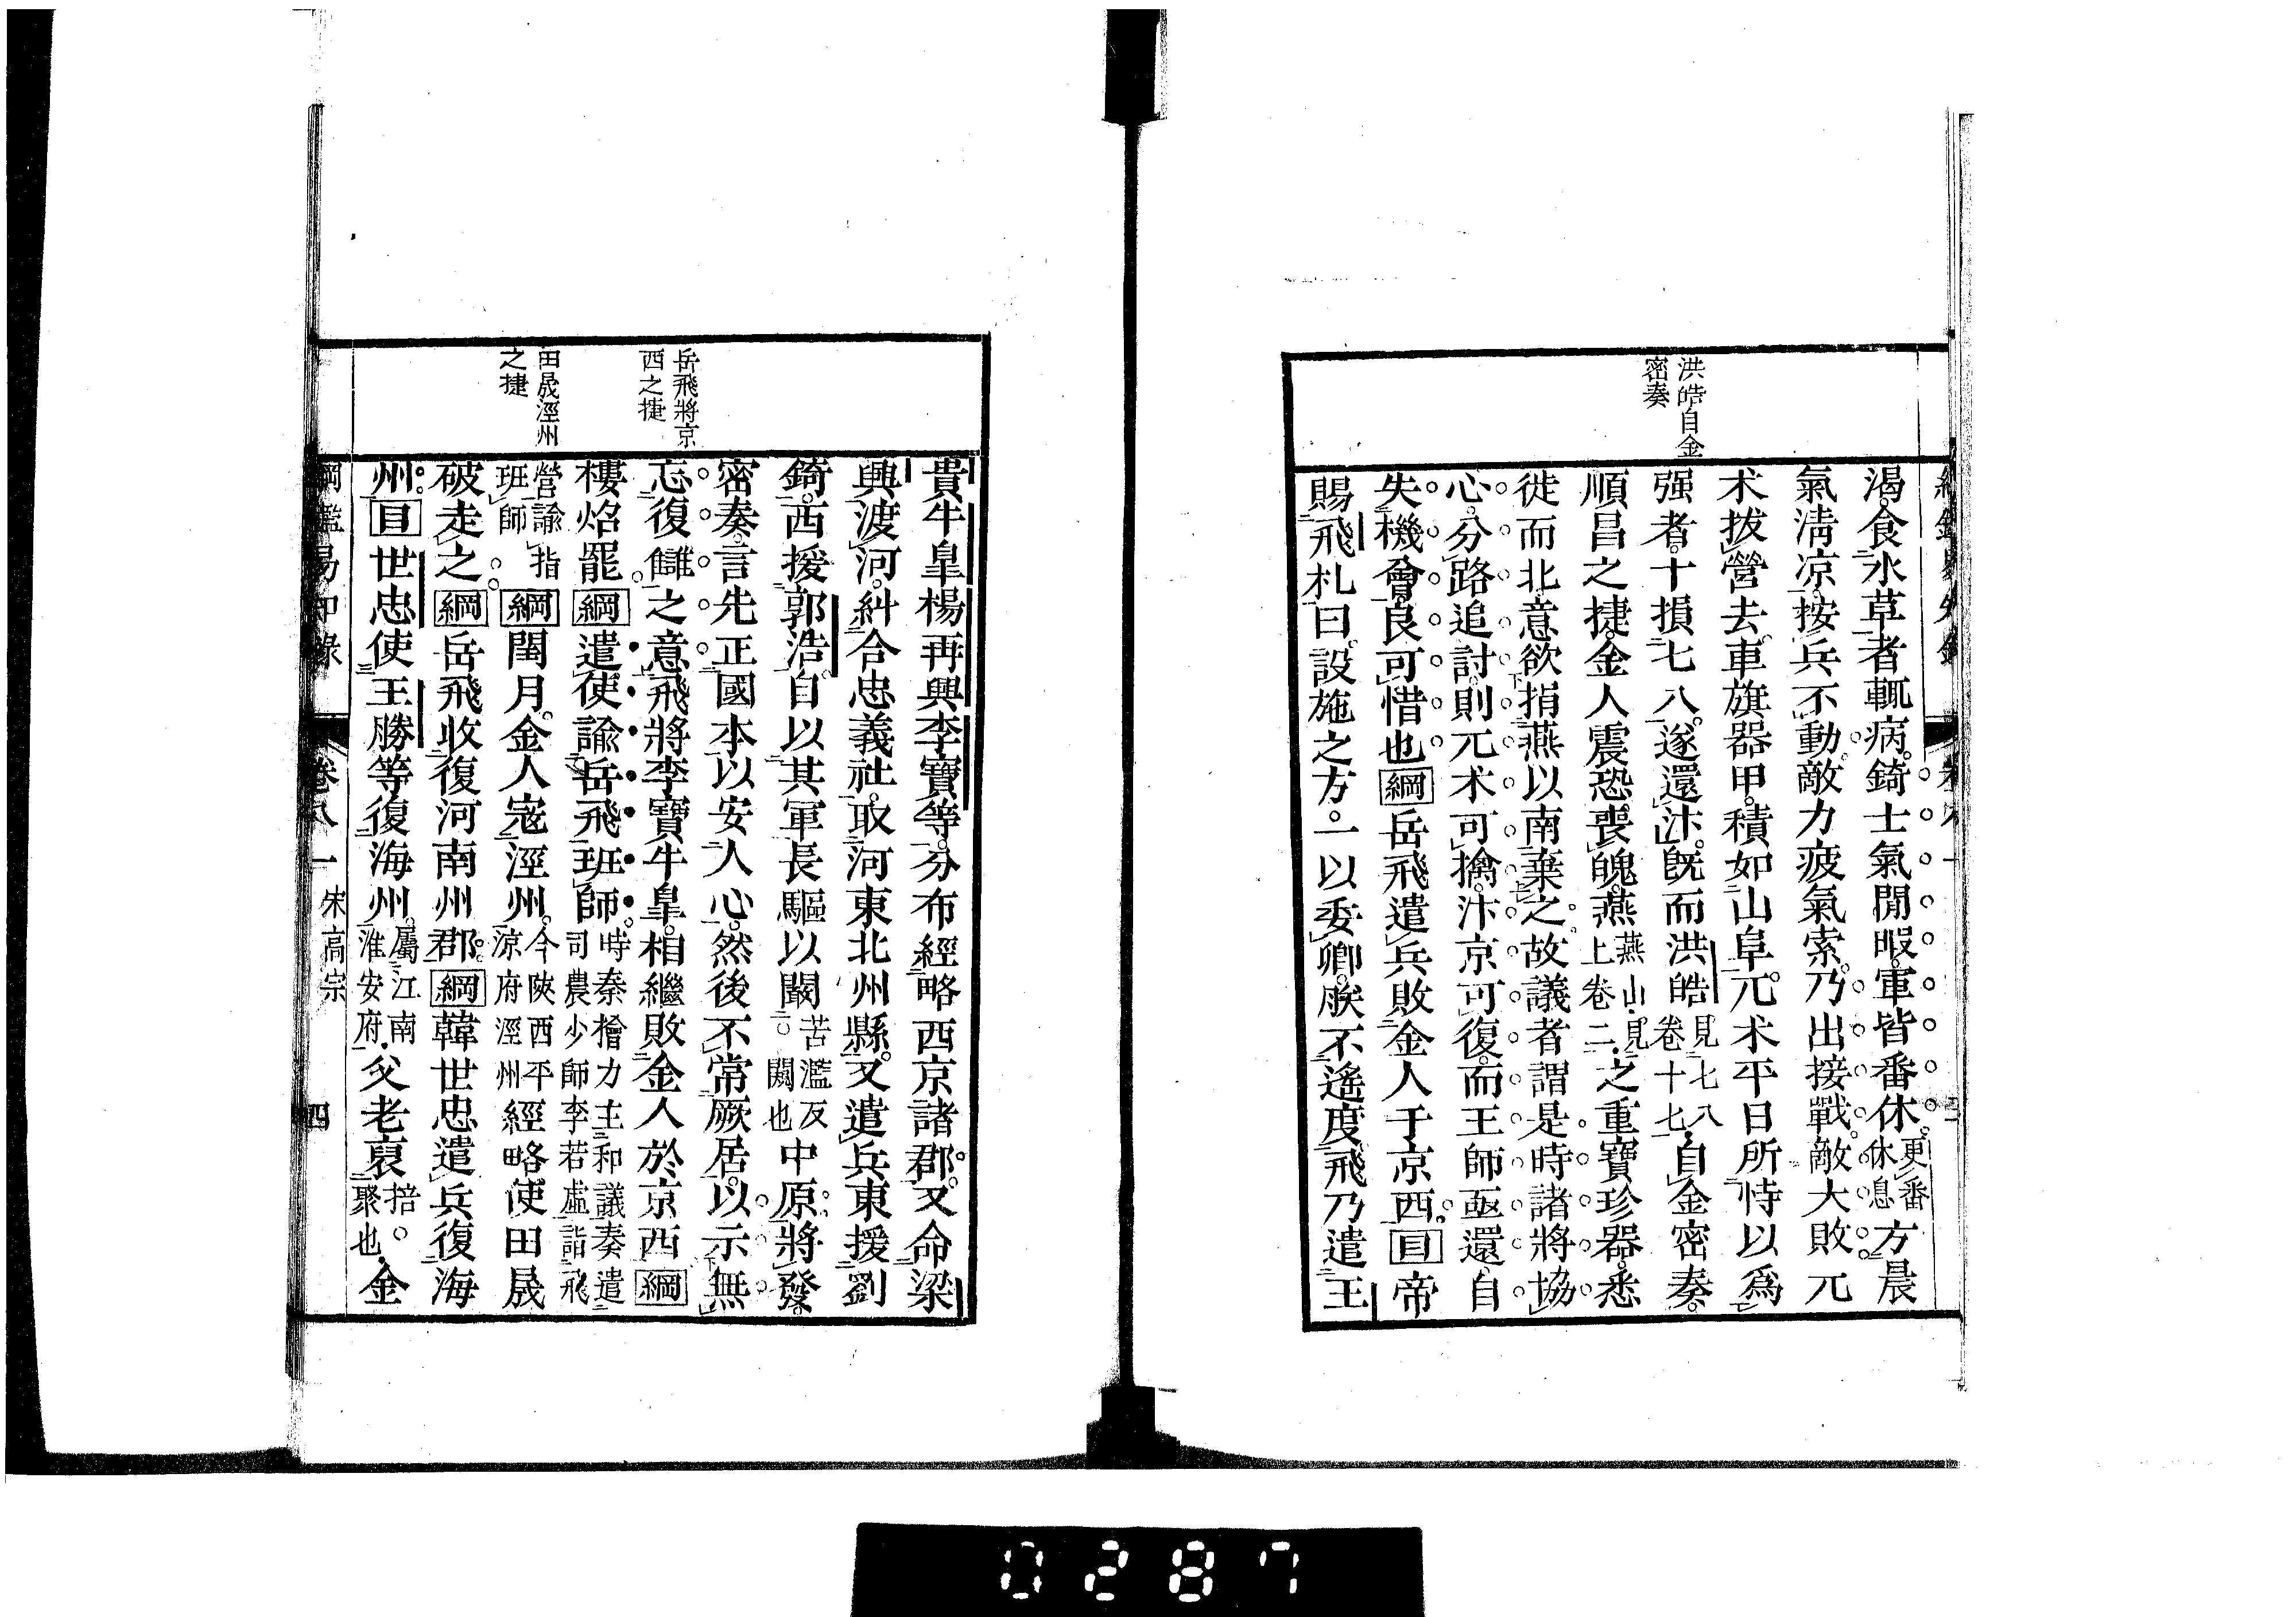 洪皓自金
密奏
渴食水草者輒病錡士氣閒暇軍皆番休更番休息方晨
氣淸凉按兵不動敵力疲氣索乃出接戰敵大敗兀
朮拔營去車旗器甲積如山阜兀朮平日所恃以爲
强者十損七八遂還汴旣而洪皓見七八卷十七自金密奏
順昌之捷金人震恐喪魄燕燕山見上卷二之重寶珍器悉
徙而北意欲捐燕以南棄之故議者謂是時諸將協
心分路追討則兀朮可擒汴京可復而王師亟還自
失機會良可惜也綱岳飛遣兵敗金人于京西目帝
賜飛札曰設施之方一以委卿朕不遙度飛乃遣王
岳飛將京
西之捷
田晟涇州
之捷
貴牛皐楊再興李寶等分布經略西京諸郡又命梁
興渡河糾合忠義社取河東北州縣又遣兵東援劉
錡西援郭浩自以其軍長驅以闞苦濫反闞也中原將發
密奏言先正國本以安人心然後不常厥居以示無
忘復讎之意飛將李寶牛皐相繼敗金人於京西綱
樓炤罷綱遣使諭岳飛班師時秦檜力主和議奏遣司農少師李若虛詣飛
營諭指班師綱閏月金人寇涇州今陝西平涼府涇州經略使田晟
破走之綱岳飛收復河南州郡綱韓世忠遣兵復海
州目世忠使王勝等復海州屬江南淮安府父老裒掊聚也金
綱鑑易知錄 卷八一 宋高宗 四
0287